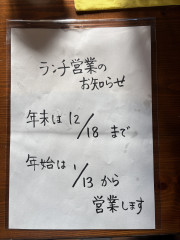 ランチ営業の
お知らせ
年末は12/18まで
年始は1/13から
営業します